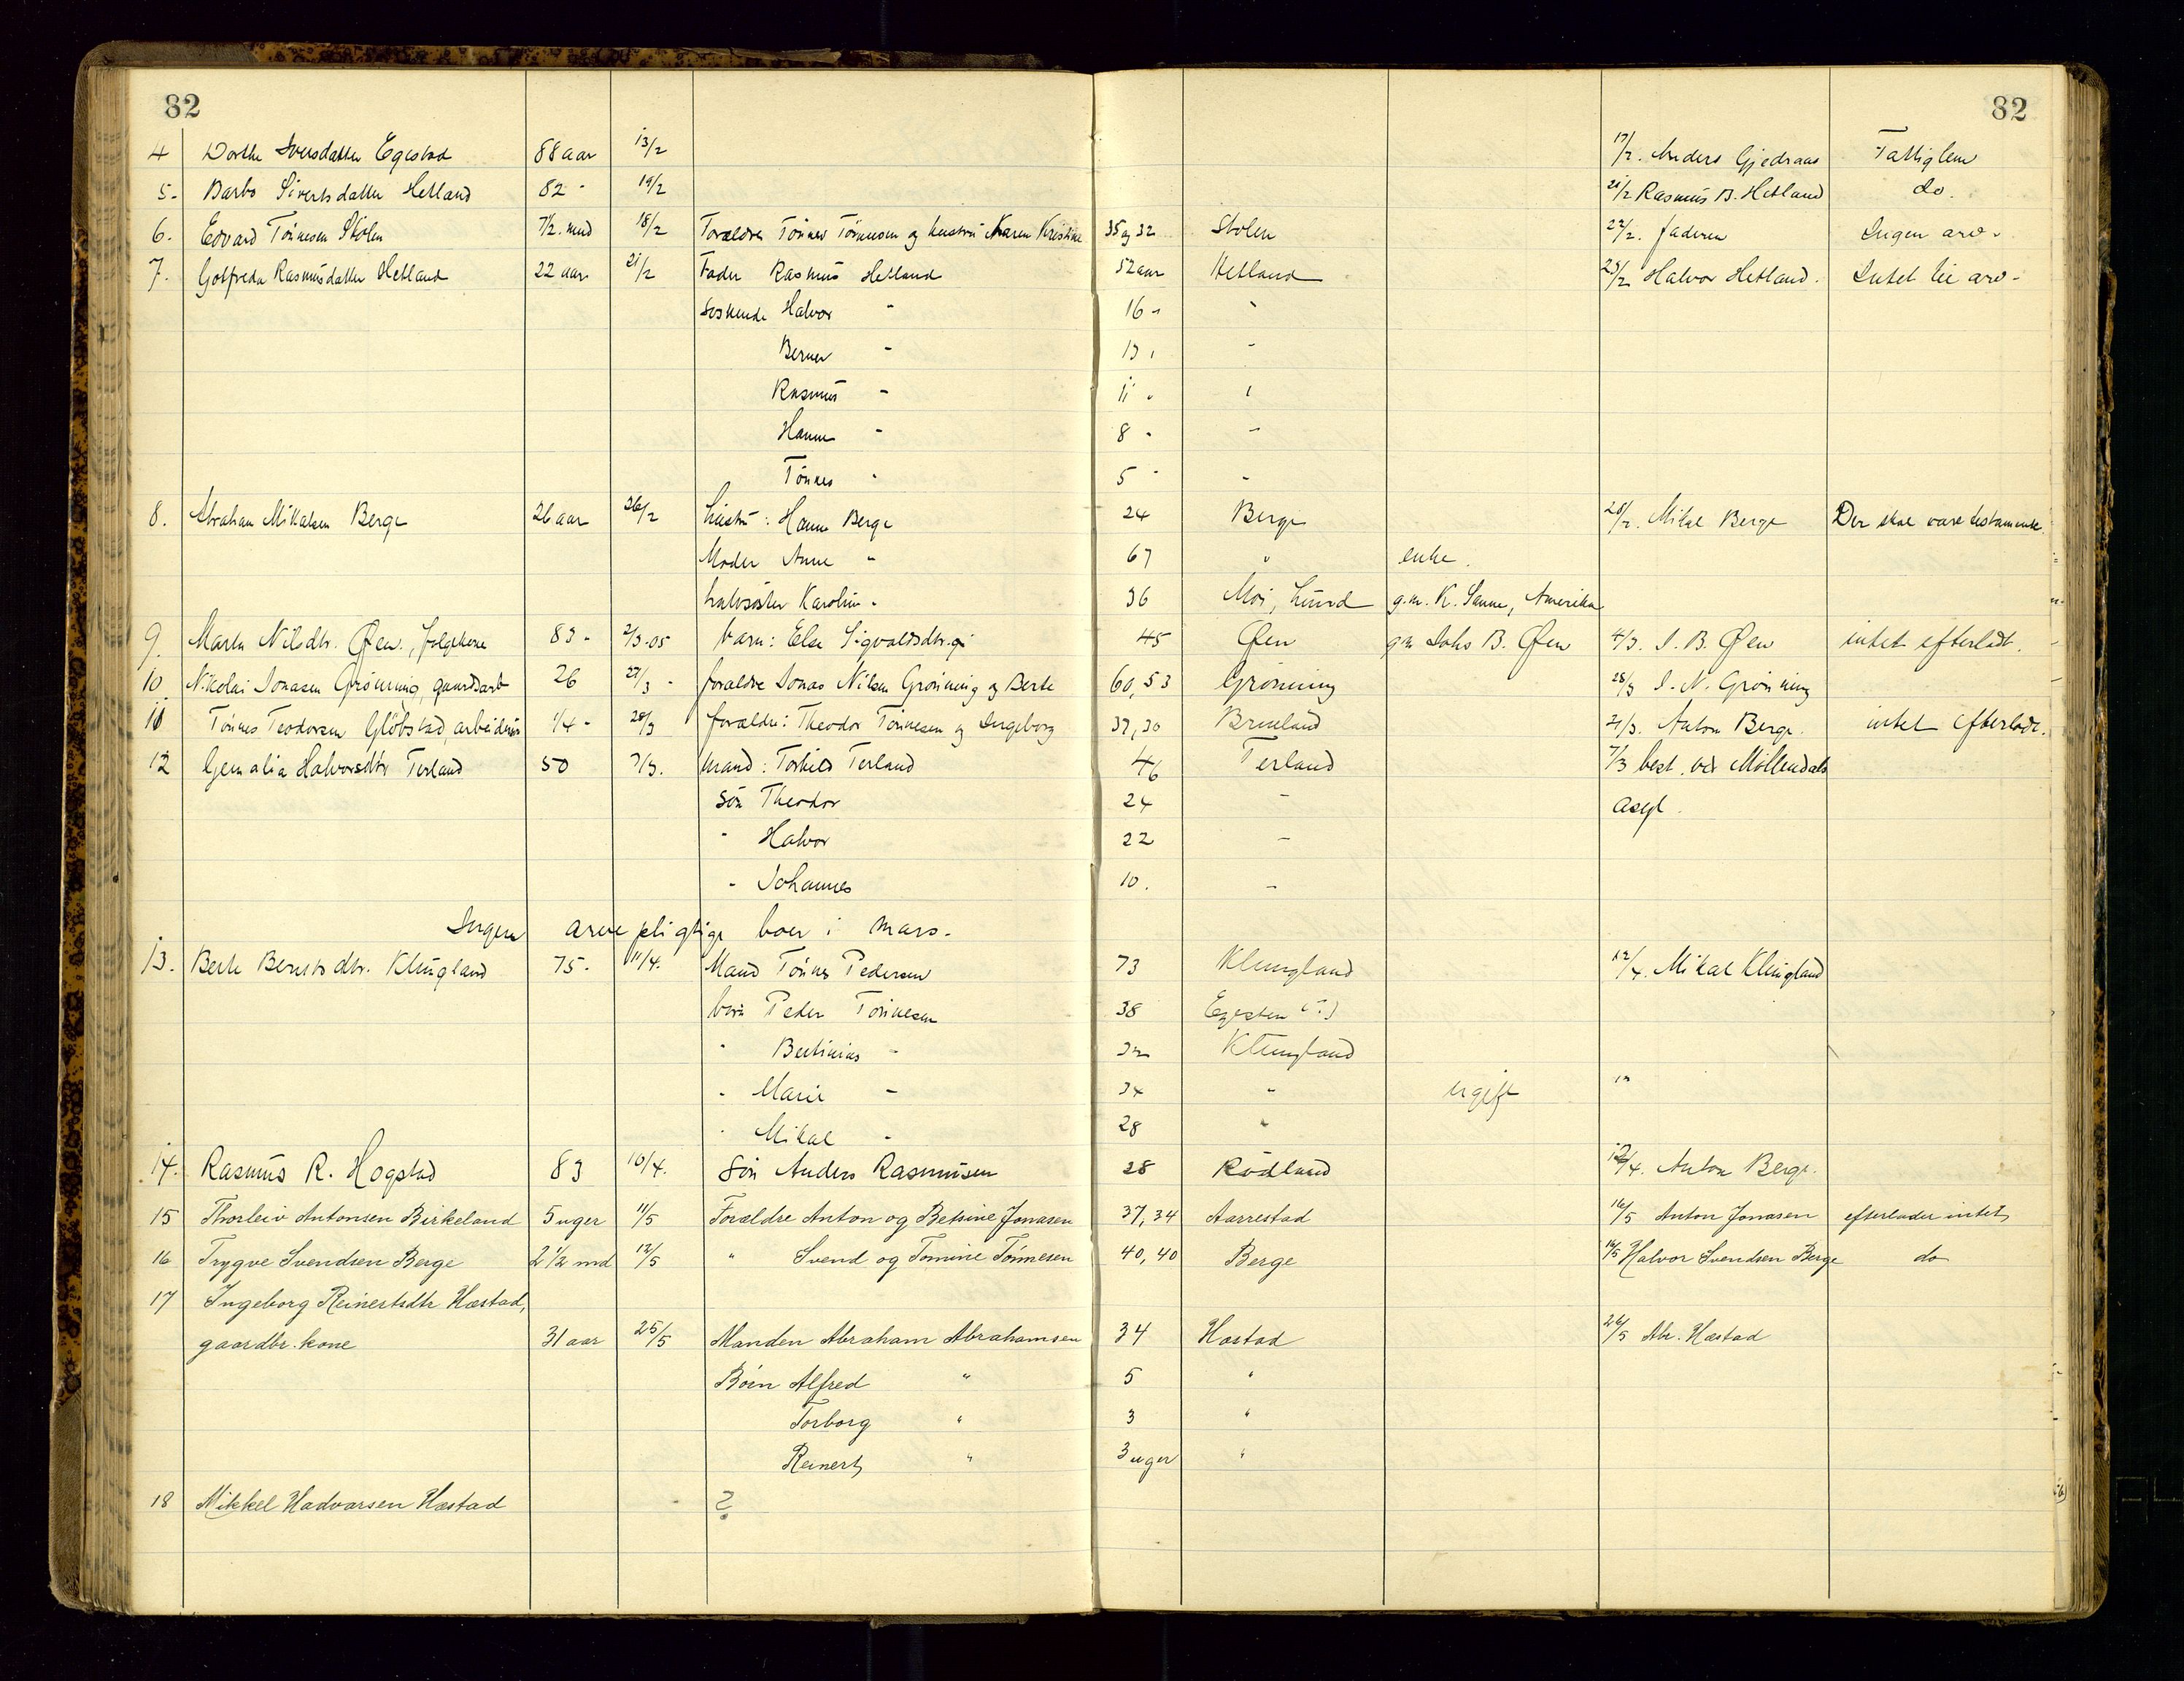 82 82
4 Dorthe Iversdatter Egestad 88 aar 13/2 17/2. Anders Gjedraas Fattiglem
5- Barbo Sivertsdatter Hetland 82 - 19/2 21/2 Rasmus B. Hetland do.
6. Edvard Tönnesen Stölen 7 1/2. mnd 18/2 Forældre Tönnes Tönnesen og hustru Karen Kristine 35 og 32 Stolen 22/2. faderen Ingen arv.
7. Gotfreda Rasmusdatter Hetland 22 aar 21/2 Fader Rasmus Hetland 52 aar Hetland 25/2 Halvor Hetland. Intet til arv -
Soskende Halvor " 16 - "
Berner - 13 , -
Rasmus - 11 " "
Hanne - 8 - -
Tönnes - 5 - -
8. Abraham Mikalsen Berge 26 aar 26/2 hustru: Hanne Berge 24 Berge 28/2. Mikal Berge Der skal være testamente.
Moder Anne - 67 " enke.
halvsöster Karoline - 36 Moi, Lund g.m. K. Sanne, Amerika
9. Marta Nilsdtr. Øen., folgekone 83 - 2/3-05 barn: Else Sigvaldsdtr. 45 Øen gm Johs B. Øen 4/3. J. B. Øen intet efterladt.
10. Nikolai Jonasen Grönning, gaardsarb 26 27/3 - forældre Jonas Nilsen Grönning og Berte 60, 53 Grönning 28/3 J. N. Grönning
11 Tönnes Teodorsen Glöbstad, 1/4 - 28/3 forældre: Theodor Tönnesen og Ingeborg 37, 30 Brueland 21/3. Anton Berge. intet efterladt.
12 Gemalia Halvorsdtr Terland 50 7/3. mand: Torkild Terland 46 Terland 7/3 best. ved Möllendals
sön Theodor 24 - asyl.
" Halvor 22 -
- Johannes 10. -
Ingen arvepligtige boer i mars.
13. Berte Berntsdtr. Klungland 75 - 11/4. Mand Tönnes Pedersen 73 Klungland 12/4. Mikal Klungland
barn Peder Tönnesen 38 Egesten (?)
" Bertinius - 32 Klungland
- Marie - 34 - ugift "
" Mikal - 28 "
14. Rasmus R. Hogstad 83 10/4. Sön Anders Rasmusen 28 Rödland 12/4. Anton Berge.
15 Thorleiv Antonsen Birkeland 5 uger 11/5 Forældre Anton og Betsine Jonasen 37, 34 Aarrestad 16/5 Anton Jonasen efterlader intet
16 Trygve Svendsen Berge 2 1/2 md 12/5 " Svend og Tomine Tönnesen 40, 40 Berge 16/5 Halvor Svendsen Berge do
17 Ingeborg Reinertsdtr Hæstad,
gaardbr. kone 31 aar 25/5 Manden Abraham Abrahamsen 34 Hæstad 26/5 Abr. Hæstad
Börn Alfred " 5 "
Torborg " 3 "
Reinert " 3 uger "
18 Mikkel Hadvarsen Hæstad ?